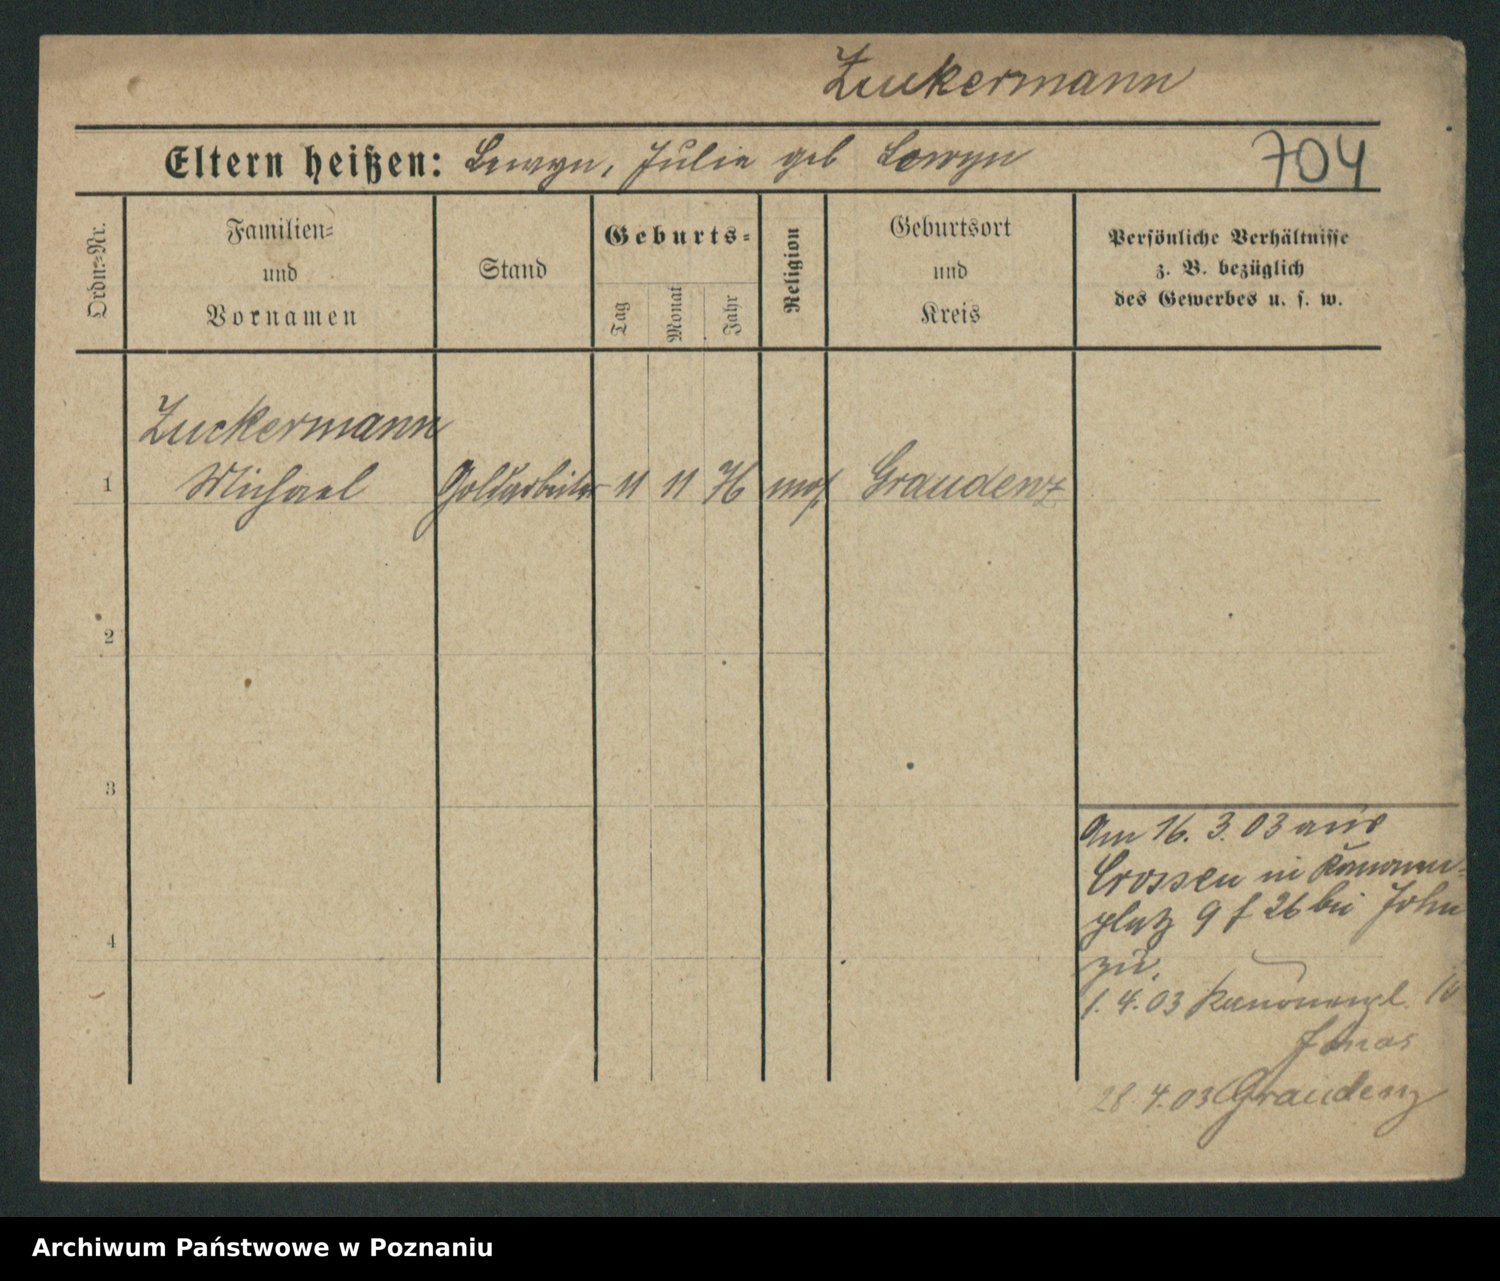 Zuckermann
Eltern heißen: Lewyn, Julia geb Lewyn
704
Ordn.=Nr.
Familien=
und
Vornamen
Stand
Geburts=
Tag
Monat
Jahr
Religion
Geburtsort
und
Kreis
Persönliche Verhältnisse
z. B. bezüglich
des Gewerbes u. s. w.
Zuckermann
1 Michael Goldarbeiter 11 11 76 mos. Graudenz
2
3
4
Am 16. 3. 03 aus
Crossen in Kanonen=
platz 9 f 26 bei John
zu.
1. 4. 03 Kanonenpl. 10
Jonas
28. 4. 03 Graudenz
Archiwum Państwowe w Poznaniu